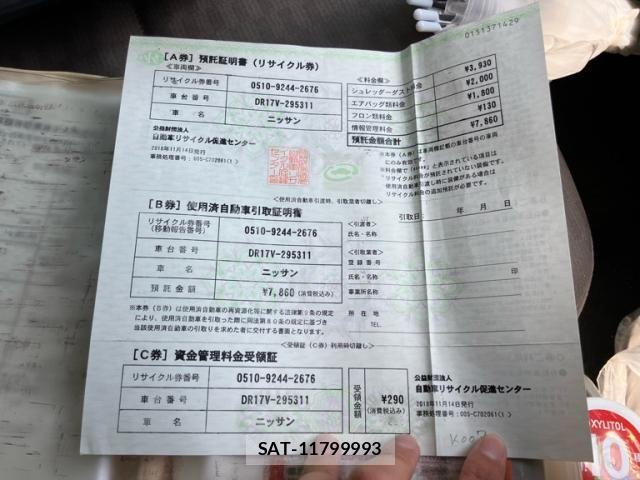 0151371429
[A券] 預託証明書 (リサイクル券)
<車両欄>
リサイクル券番号 0510-9244-2676
車台番号 DR17V-295311
車名 ニッサン
公益財団法人
自動車リサイクル促進センター
2018年11月14日発行
事務処理番号:005-C702061( )
<料金欄>
シュレッダーダスト料金 ¥3,930
エアバッグ類料金 ¥2,000
フロン類料金 ¥1,800
情報管理料金 ¥130
預託金額合計 ¥7,860
<使用済自動車引渡時、引取業者切離し>
[B券] 使用済自動車引取証明書
リサイクル券番号
(移動報告番号) 0510-9244-2676
車台番号 DR17V-295311
車名 ニッサン
預託金額 ¥7,860 (消費税込み)
引取日: 年 月 日
<引渡者>
氏名・名称
<引取業者>
登録番号
氏名・名称 印
事業所名称
所在地
TEL.
※本券(B券)は使用済自動車の再資源化等に関する法律第9条の規定
により、使用済自動車を引取った際に同法第80条の規定に基づき
当該使用済自動車の引取りを求めた者に交付する書面となります。
<受領証(C券)利用時切離し>
[C券] 資金管理料金受領証
リサイクル券番号 0510-9244-2676
車台番号 DR17V-295311
車名 ニッサン
受領金額 ¥290
(消費税込み)
公益財団法人
自動車リサイクル促進センター
2018年11月14日発行
事務処理番号:005-C702061( )
XYLITOL
SAT-11799993